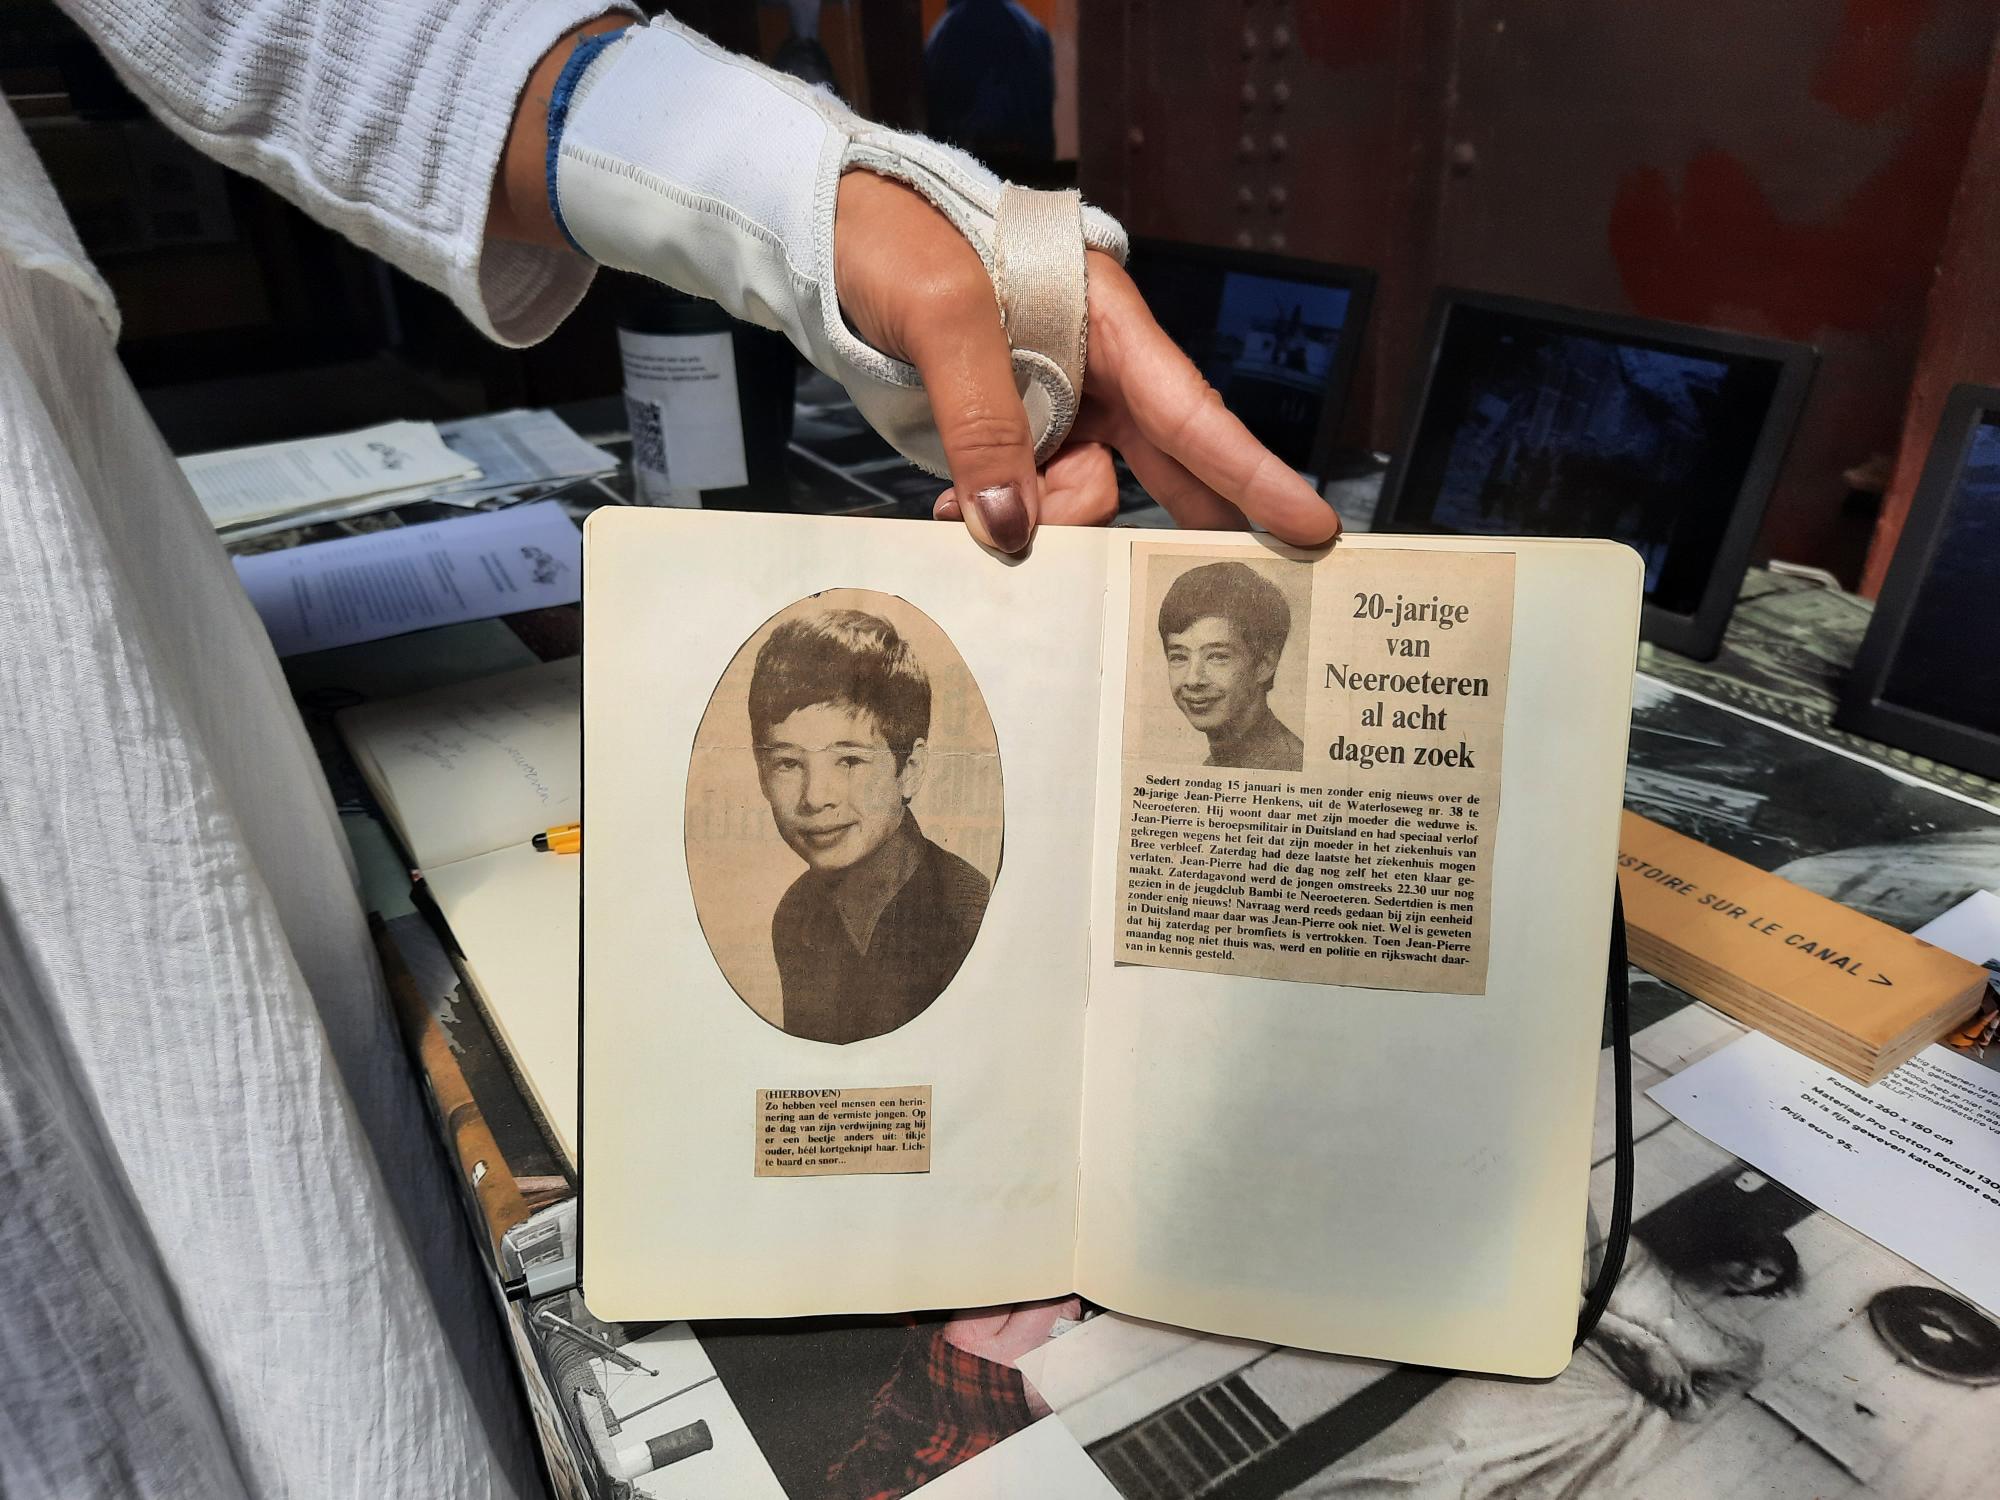 20-jarige
van
Neeroeteren
al acht
dagen zoek
Sedert zondag 15 januari is men zonder enig nieuws over de
20-jarige Jean-Pierre Henkens, uit de Waterloseweg nr. 38 te
Neeroeteren. Hij woont daar met zijn moeder die weduwe is.
Jean-Pierre is beroepsmilitair in Duitsland en had speciaal verlof
gekregen wegens het feit dat zijn moeder in het ziekenhuis van
Bree verbleef. Zaterdag had deze laatste het ziekenhuis mogen
verlaten. Jean-Pierre had die dag nog zelf het eten klaar ge-
maakt. Zaterdagavond werd de jongen omstreeks 22.30 uur nog
gezien in de jeugdclub Bambi te Neeroeteren. Sedertdien is men
zonder enig nieuws! Navraag werd reeds gedaan bij zijn eenheid
in Duitsland maar daar was Jean-Pierre ook niet. Wel is geweten
dat hij zaterdag per bromfiets is vertrokken. Toen Jean-Pierre
maandag nog niet thuis was, werd en politie en rijkswacht daar-
van in kennis gesteld.
(HIERBOVEN)
Zo hebben veel mensen een herin-
nering aan de vermiste jongen. Op
de dag van zijn verdwijning zag hij
er een beetje anders uit: tikje
ouder, héél kortgeknipt haar. Lich-
te baard en snor...
ISTOIRE SUR LE CANAL >
Formaat 260 x 150 cm
Materiaal Pro Cotton Percal 130
Dit is fijn geweven katoen met ee
Prijs euro 95,-